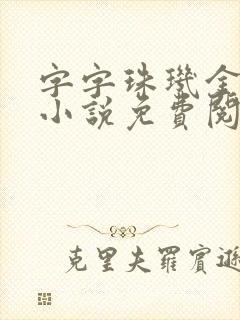 字字珠璣全
小說免費閱
克里夫羅賓遜